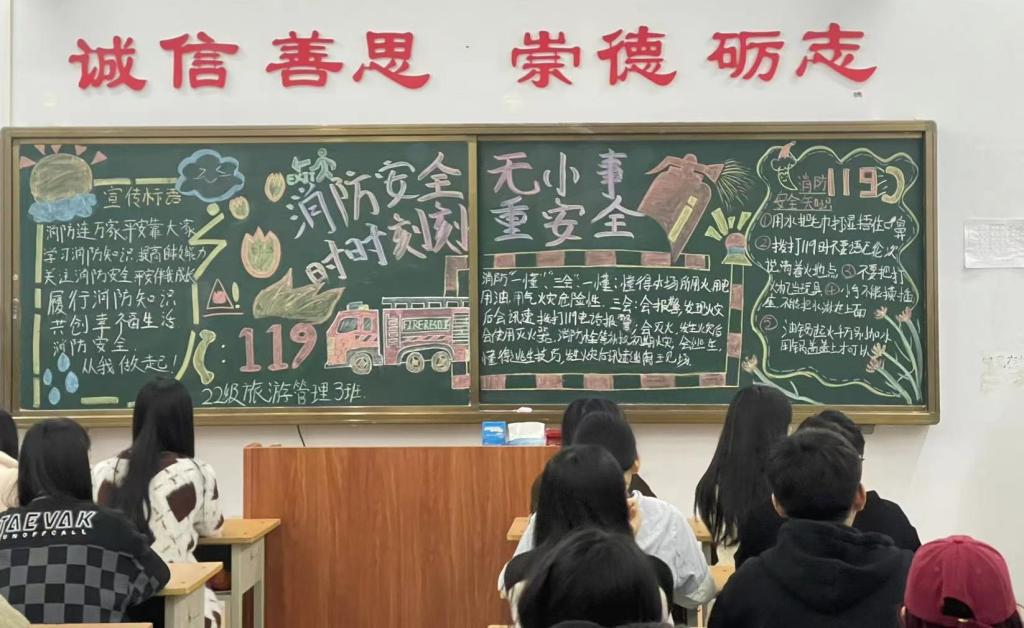 诚信善思 崇德砺志
宣传标语
消防连万家平安靠大家
学习消防知识 提高自救能力
关注消防安全
履行消防知识
共创幸福生活
消防安全
从我做起!
消防安全
时时刻刻
119
FIRE
22级旅游管理3班.
无小事
重安全
消防"一懂""三会":一懂:懂得本场所用火、用电
用油、用气火灾危险性.三会:会报警,发现火灾
后会迅速拨打119电话报警;会灭火,发生火灾后
会使用灭火器、消防栓等扑救初期火灾,会逃生,
懂得逃生技巧,发生火灾后迅速逃离现场.
消防119
安全知识
①用水把毛巾打湿捂住口鼻
②拨打119时不要语无伦次
说清着火地点 ③不要把打
火机当玩具 ④
油锅起火千万别加水
用锅盖盖上才可以
TAEVAK
UNOFFCALL